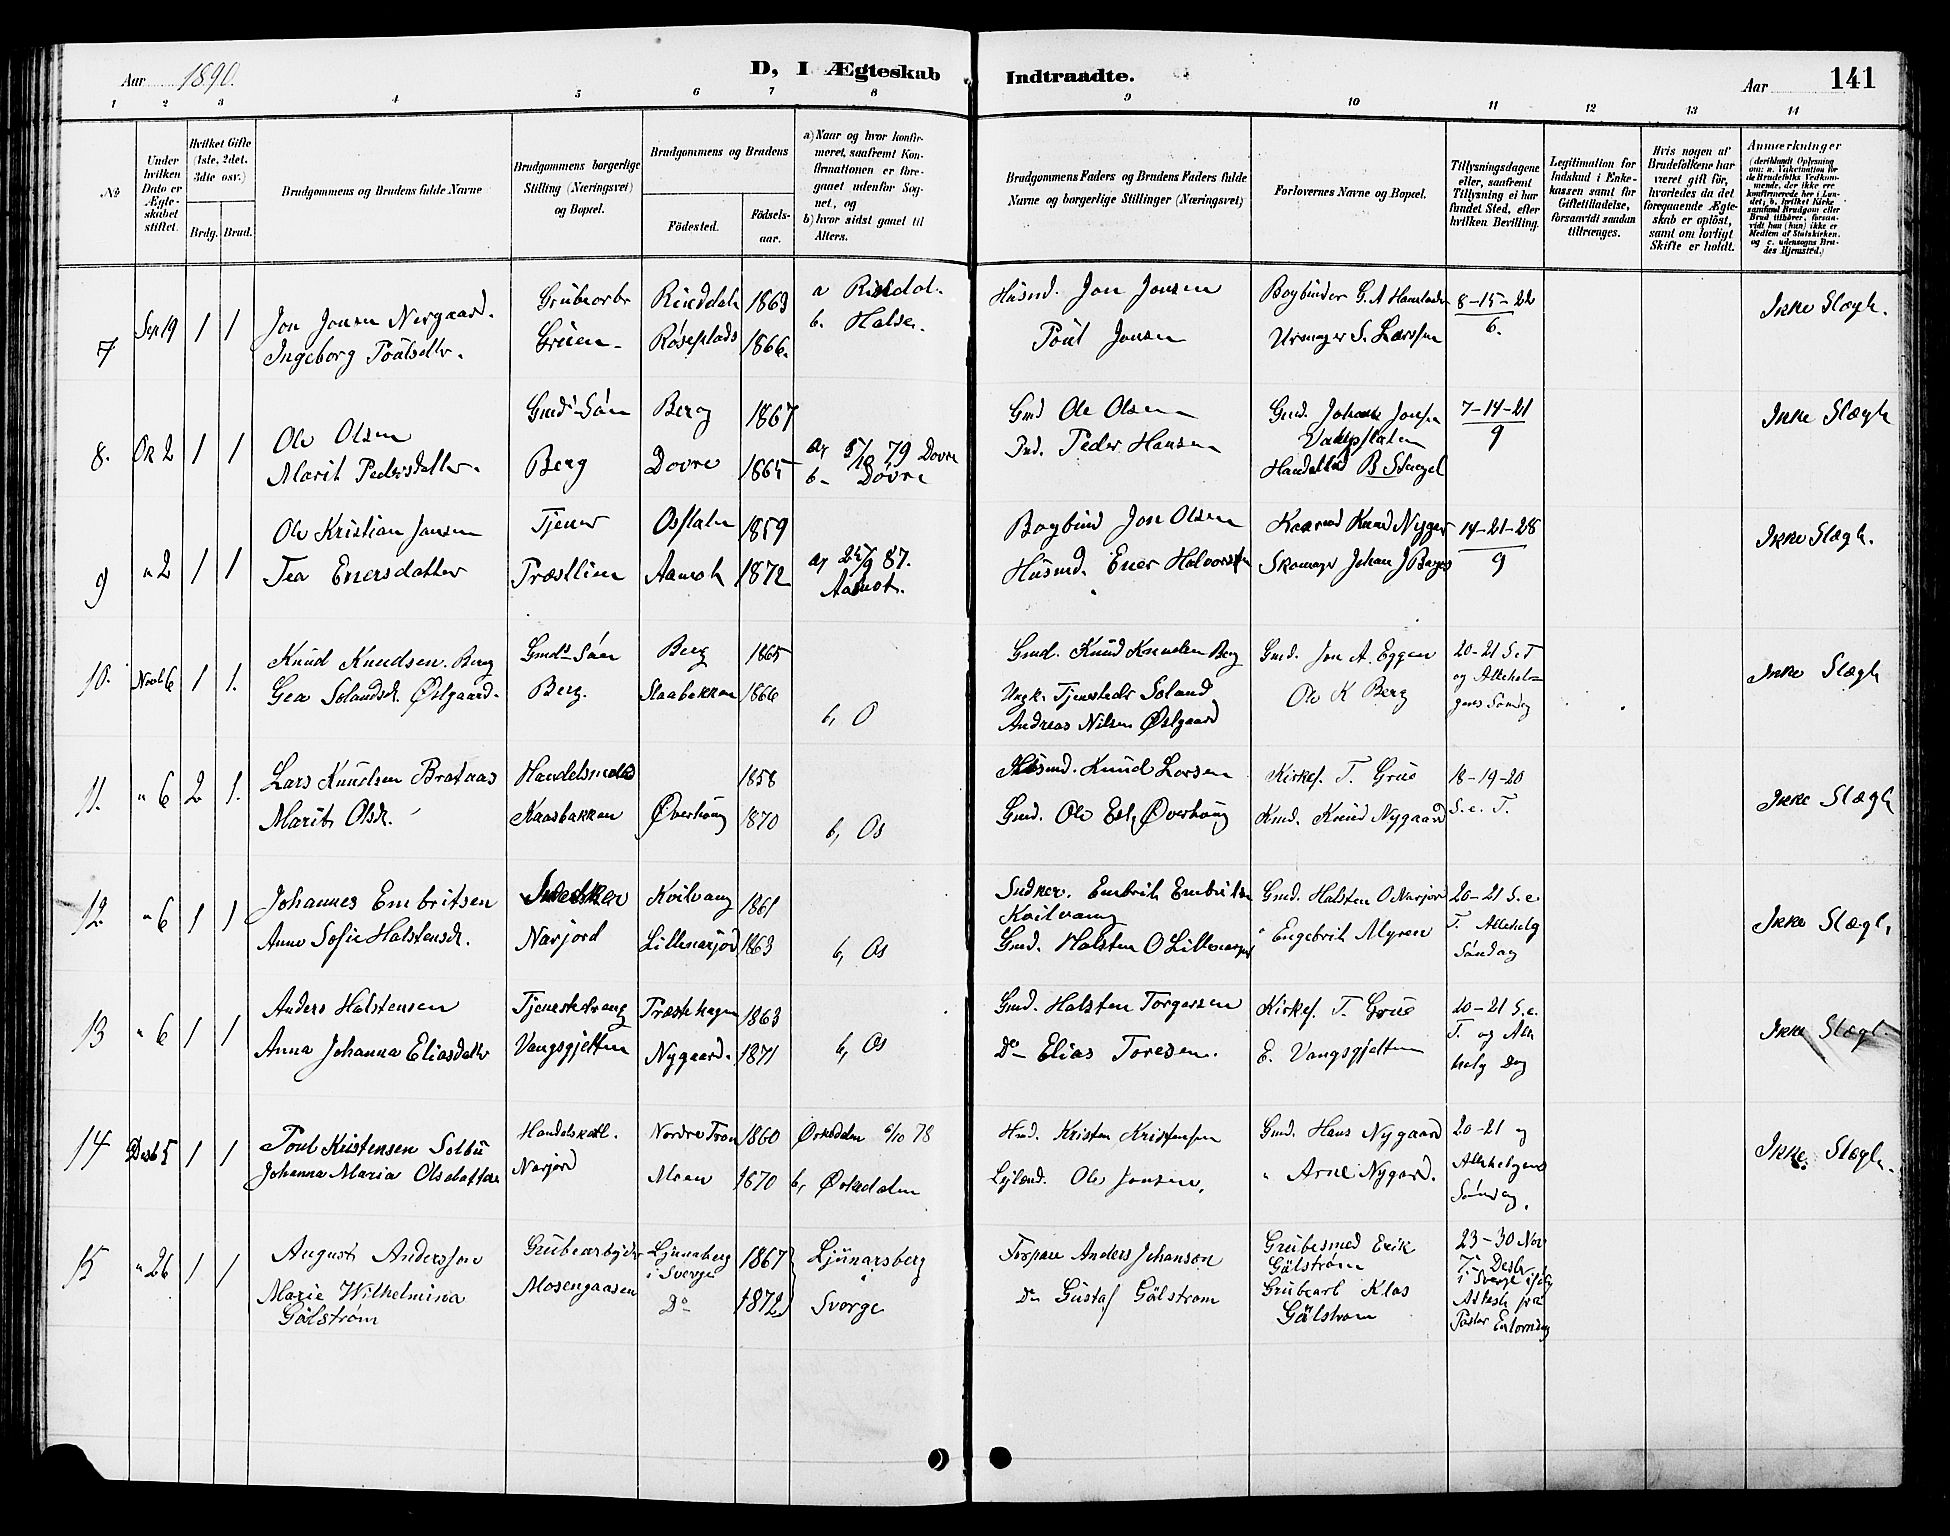 Aar 1890.
D, I Ægteskab Indtraadte.
Aar 141
1 2 3 4 5 6 7 8 9 10 11 12 13 14
No
Under hvilken Dato er Ægteskabet stiftet.
Hvilket Gifte (1ste, 2det, 3die osv.)
Brdg. Brud.
Brudgommens og Brudens fulde Navne
Brudgommens borgerlige Stilling (Næringsvei) og Bopæl.
Brudgommens og Brudens
Fødested.
Fødselsaar.
a) Naar og hvor konfirmeret, saafremt Konfirmationen er foregaaet udenfor Sognet, og
b) hvor sidst gaaet til Alters.
Brudgommens Faders og Brudens Faders fulde Navne og borgerlige Stillinger (Næringsvei)
Forlovernes Navne og Bopæl.
Tillysningsdagene eller, saafremt Tillysning ei har fundet Sted, efter hvilken Bevilling.
Legitimation for Indskud i Enkekassen samt for Giftetilladelse, forsaavidt saadan tiltrænges.
Hvis nogen af Brudefolkene har været gift før, hvorledes da det foregaaende Ægteskab er opløst, samt om lovligt Skifte er holdt.
Anmærkninger
7 Sep 19 1 1
Jon Jonsen Nergaard.
Ingeborg Poulsdtr.
Grubearbr
Gruen
Rinddal 1863
Røseplads 1866.
a Rindal.
b. Halse.
Husmd. Jon Jonsen
Poul Jonsen
Bogbinder G. A
Urmager S. Larssen
8-15-22
6.
Ikke Slægt.
8. Ok 2 1 1
Ole Olsen
Marit Pedersdatter.
Gmds Søn
Berg
Berg 1867
Dovre 1865
a, 5/10 79 Dovre
b. Dovre
Gmd Ole Olsen
Ind. Peder Hansen
Gmd. Johan Jonsen
7-14-21
9
Ikke Slægt
9 " 2 1 1
Ole Kristian Jansen
Tea Enersdatter
Tjener
Præstlien
1859
Aamot 1872
a, 25/9 87.
Aamot.
Bogbind Jon Olsen
Husmd. Ener Halvorsen
Knud Nygar
Skomager Johan J
14-21-28
9
Ikke Slægt.
10. Novb 6 1 1.
Knud Knudsen. Berg
Gea Solandsd. Østgaard.
Gmds Søn
Berg.
Berg 1865
Staabakken 1866
b, O
Gmd. Knud Knudsen Berg
Ungk. Tjenestedr Soland
Andreas Nilsen Østgaard
Gmd. Jon A. Eggen
Ole K Berg
20-21 S. e T
og Allehelgens Søndag
Ikke Slægt
11. " 6 2 1.
Lars Knudsen Brataas
Marit Olsd.
Handelsmand
Kaasbakken
1858
Øverhaug 1870
b, Os
Husmd. Knud Larsen
Gmd. Ole Øverhaug
Kirkes. T. Grue
Kmd. Knud Nygaard
18-19-20
S. e. T.
Ikke Slægt
12. " 6 1 1
Johannes Embritsen
Anne Sofie Halstensd.
Snedker
Narjord
Kvilvang 1861
Lillenarjord 1863
b, Os
Sndker. Embrik Embritsen
Kvilvang
Gmd. Halsten O Lillenarjord
Gmd. Halsten O Narjord
" Engebrit Myren
20-21 S. e.
T. Allehelg
Søndag
Ikke Slægt.
13 " 6 1 1
Anders Halstensen
Anna Johanna Eliasdatter
Tjenestedreng
Vangsgjelten
Præsthagen 1863
Nygaard. 1871
b, Os
Gmd. Halsten Torgersen
Do Elias Toresen.
Kirkes. T. Grue
E. Vangsgjelten
20-21 S. e.
T. og Alle
helg Dag
Ikke Slægt.
14 Desb 5 1 1
Poul Kristensen Solbu
Johanna Maria Olsdatter
Handelskarl.
Narjord
Nordre Tron 1860
Moen 1870
Orkedalen 6/10 78
b, Orkedalen
Hmd. Kristen Kristensen
Ole Jonsen.
Gmd. Hans Nygaard
" Arne Nygard.
20-21 og
Allehelgens
Søndag.
Ikke Slægt.
15 " 26 1 1
August Andersson
Marie Wilhelmina
Gålstrøm
Grubearbejder
Mosengaasen
Ljunaberg 1867
i Sverge
Do 1872
Ljunarsberg
i
Sverge
Torpare Anders Johanson
Do Gustaf Gålstrøm
Grubesmed Erik
Gålstrøm
Grubearb Klas
Gålstrøm
23-30 Nov
7. Desbr
i Sverge ifølg
Attest fra
Pastor